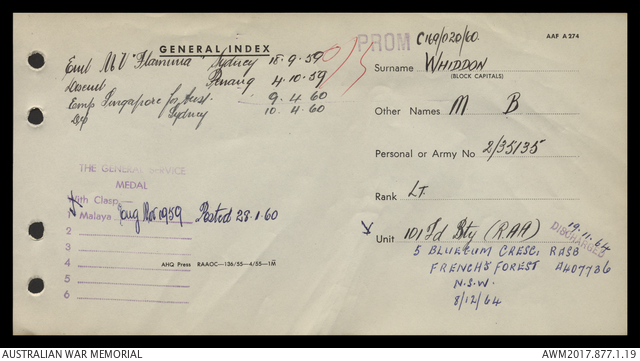 GENERAL INDEX
Emb MV "Flaminia" Sydney 18.9.59
Disemb Penang 4.10.59
Emp Singapore for Aust. 9.4.60
Dep Sydney 10.4.60
THE GENERAL SERVICE
MEDAL
With Clasp
1 Malaya Aug Nov 1959 Posted 28.1.60
2
3
4
5
6
AHQ Press RAAOC—136/55—4/55—1M
PROM C169/020/60
AAF A 274
Surname WHIDDON
(BLOCK CAPITALS)
Other Names M B
Personal or Army No 2/35135
Rank LT
Unit 101 Fd Bty (RAA)
19.11.64
DISCHARGED
5 BLUEGUM CRESC, RASB
FRENCHS FOREST A407736
N.S.W.
8/12/64
AUSTRALIAN WAR MEMORIAL
AWM2017.877.1.19